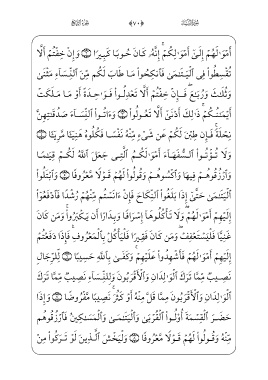 سورة النساء ﴿٧٠﴾ الجزء الرابع
أَمْوَٰلَهُمْ إِلَىٰٓ أَمْوَٰلِكُمْ ۚ إِنَّهُۥ كَانَ حُوبًا كَبِيرًا ۝ وَإِنْ خِفْتُمْ أَلَّا
تُقْسِطُوا۟ فِى ٱلْيَتَٰمَىٰ فَٱنكِحُوا۟ مَا طَابَ لَكُم مِّنَ ٱلنِّسَآءِ مَثْنَىٰ
وَثُلَٰثَ وَرُبَٰعَ ۖ فَإِنْ خِفْتُمْ أَلَّا تَعْدِلُوا۟ فَوَٰحِدَةً أَوْ مَا مَلَكَتْ
أَيْمَٰنُكُمْ ۚ ذَٰلِكَ أَدْنَىٰٓ أَلَّا تَعُولُوا۟ ۝ وَءَاتُوا۟ ٱلنِّسَآءَ صَدُقَٰتِهِنَّ
نِحْلَةً ۚ فَإِن طِبْنَ لَكُمْ عَن شَىْءٍ مِّنْهُ نَفْسًا فَكُلُوهُ هَنِيٓـًٔا مَّرِيٓـًٔا ۝
وَلَا تُؤْتُوا۟ ٱلسُّفَهَآءَ أَمْوَٰلَكُمُ ٱلَّتِى جَعَلَ ٱللَّهُ لَكُمْ قِيَٰمًا
وَٱرْزُقُوهُمْ فِيهَا وَٱكْسُوهُمْ وَقُولُوا۟ لَهُمْ قَوْلًا مَّعْرُوفًا ۝ وَٱبْتَلُوا۟
ٱلْيَتَٰمَىٰ حَتَّىٰٓ إِذَا بَلَغُوا۟ ٱلنِّكَاحَ فَإِنْ ءَانَسْتُم مِّنْهُمْ رُشْدًا فَٱدْفَعُوٓا۟
إِلَيْهِمْ أَمْوَٰلَهُمْ ۖ وَلَا تَأْكُلُوهَآ إِسْرَافًا وَبِدَارًا أَن يَكْبَرُوا۟ ۚ وَمَن كَانَ
غَنِيًّا فَلْيَسْتَعْفِفْ ۖ وَمَن كَانَ فَقِيرًا فَلْيَأْكُلْ بِٱلْمَعْرُوفِ ۚ فَإِذَا دَفَعْتُمْ
إِلَيْهِمْ أَمْوَٰلَهُمْ فَأَشْهِدُوا۟ عَلَيْهِمْ ۚ وَكَفَىٰ بِٱللَّهِ حَسِيبًا ۝ لِّلرِّجَالِ
نَصِيبٌ مِّمَّا تَرَكَ ٱلْوَٰلِدَانِ وَٱلْأَقْرَبُونَ وَلِلنِّسَآءِ نَصِيبٌ مِّمَّا تَرَكَ
ٱلْوَٰلِدَانِ وَٱلْأَقْرَبُونَ مِمَّا قَلَّ مِنْهُ أَوْ كَثُرَ ۚ نَصِيبًا مَّفْرُوضًا ۝ وَإِذَا
حَضَرَ ٱلْقِسْمَةَ أُو۟لُوا۟ ٱلْقُرْبَىٰ وَٱلْيَتَٰمَىٰ وَٱلْمَسَٰكِينُ فَٱرْزُقُوهُم
مِّنْهُ وَقُولُوا۟ لَهُمْ قَوْلًا مَّعْرُوفًا ۝ وَلْيَخْشَ ٱلَّذِينَ لَوْ تَرَكُوا۟ مِنْ